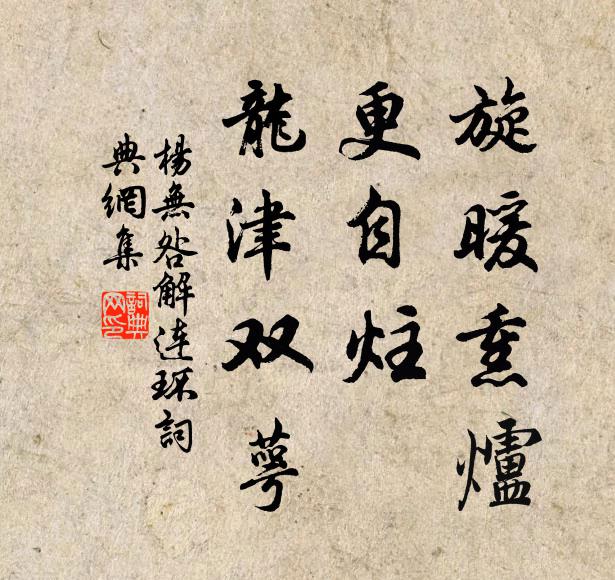 旋暖熏爐
更自炷
龍津双萼
楊無咎解連环詞
典網集
詞典网印